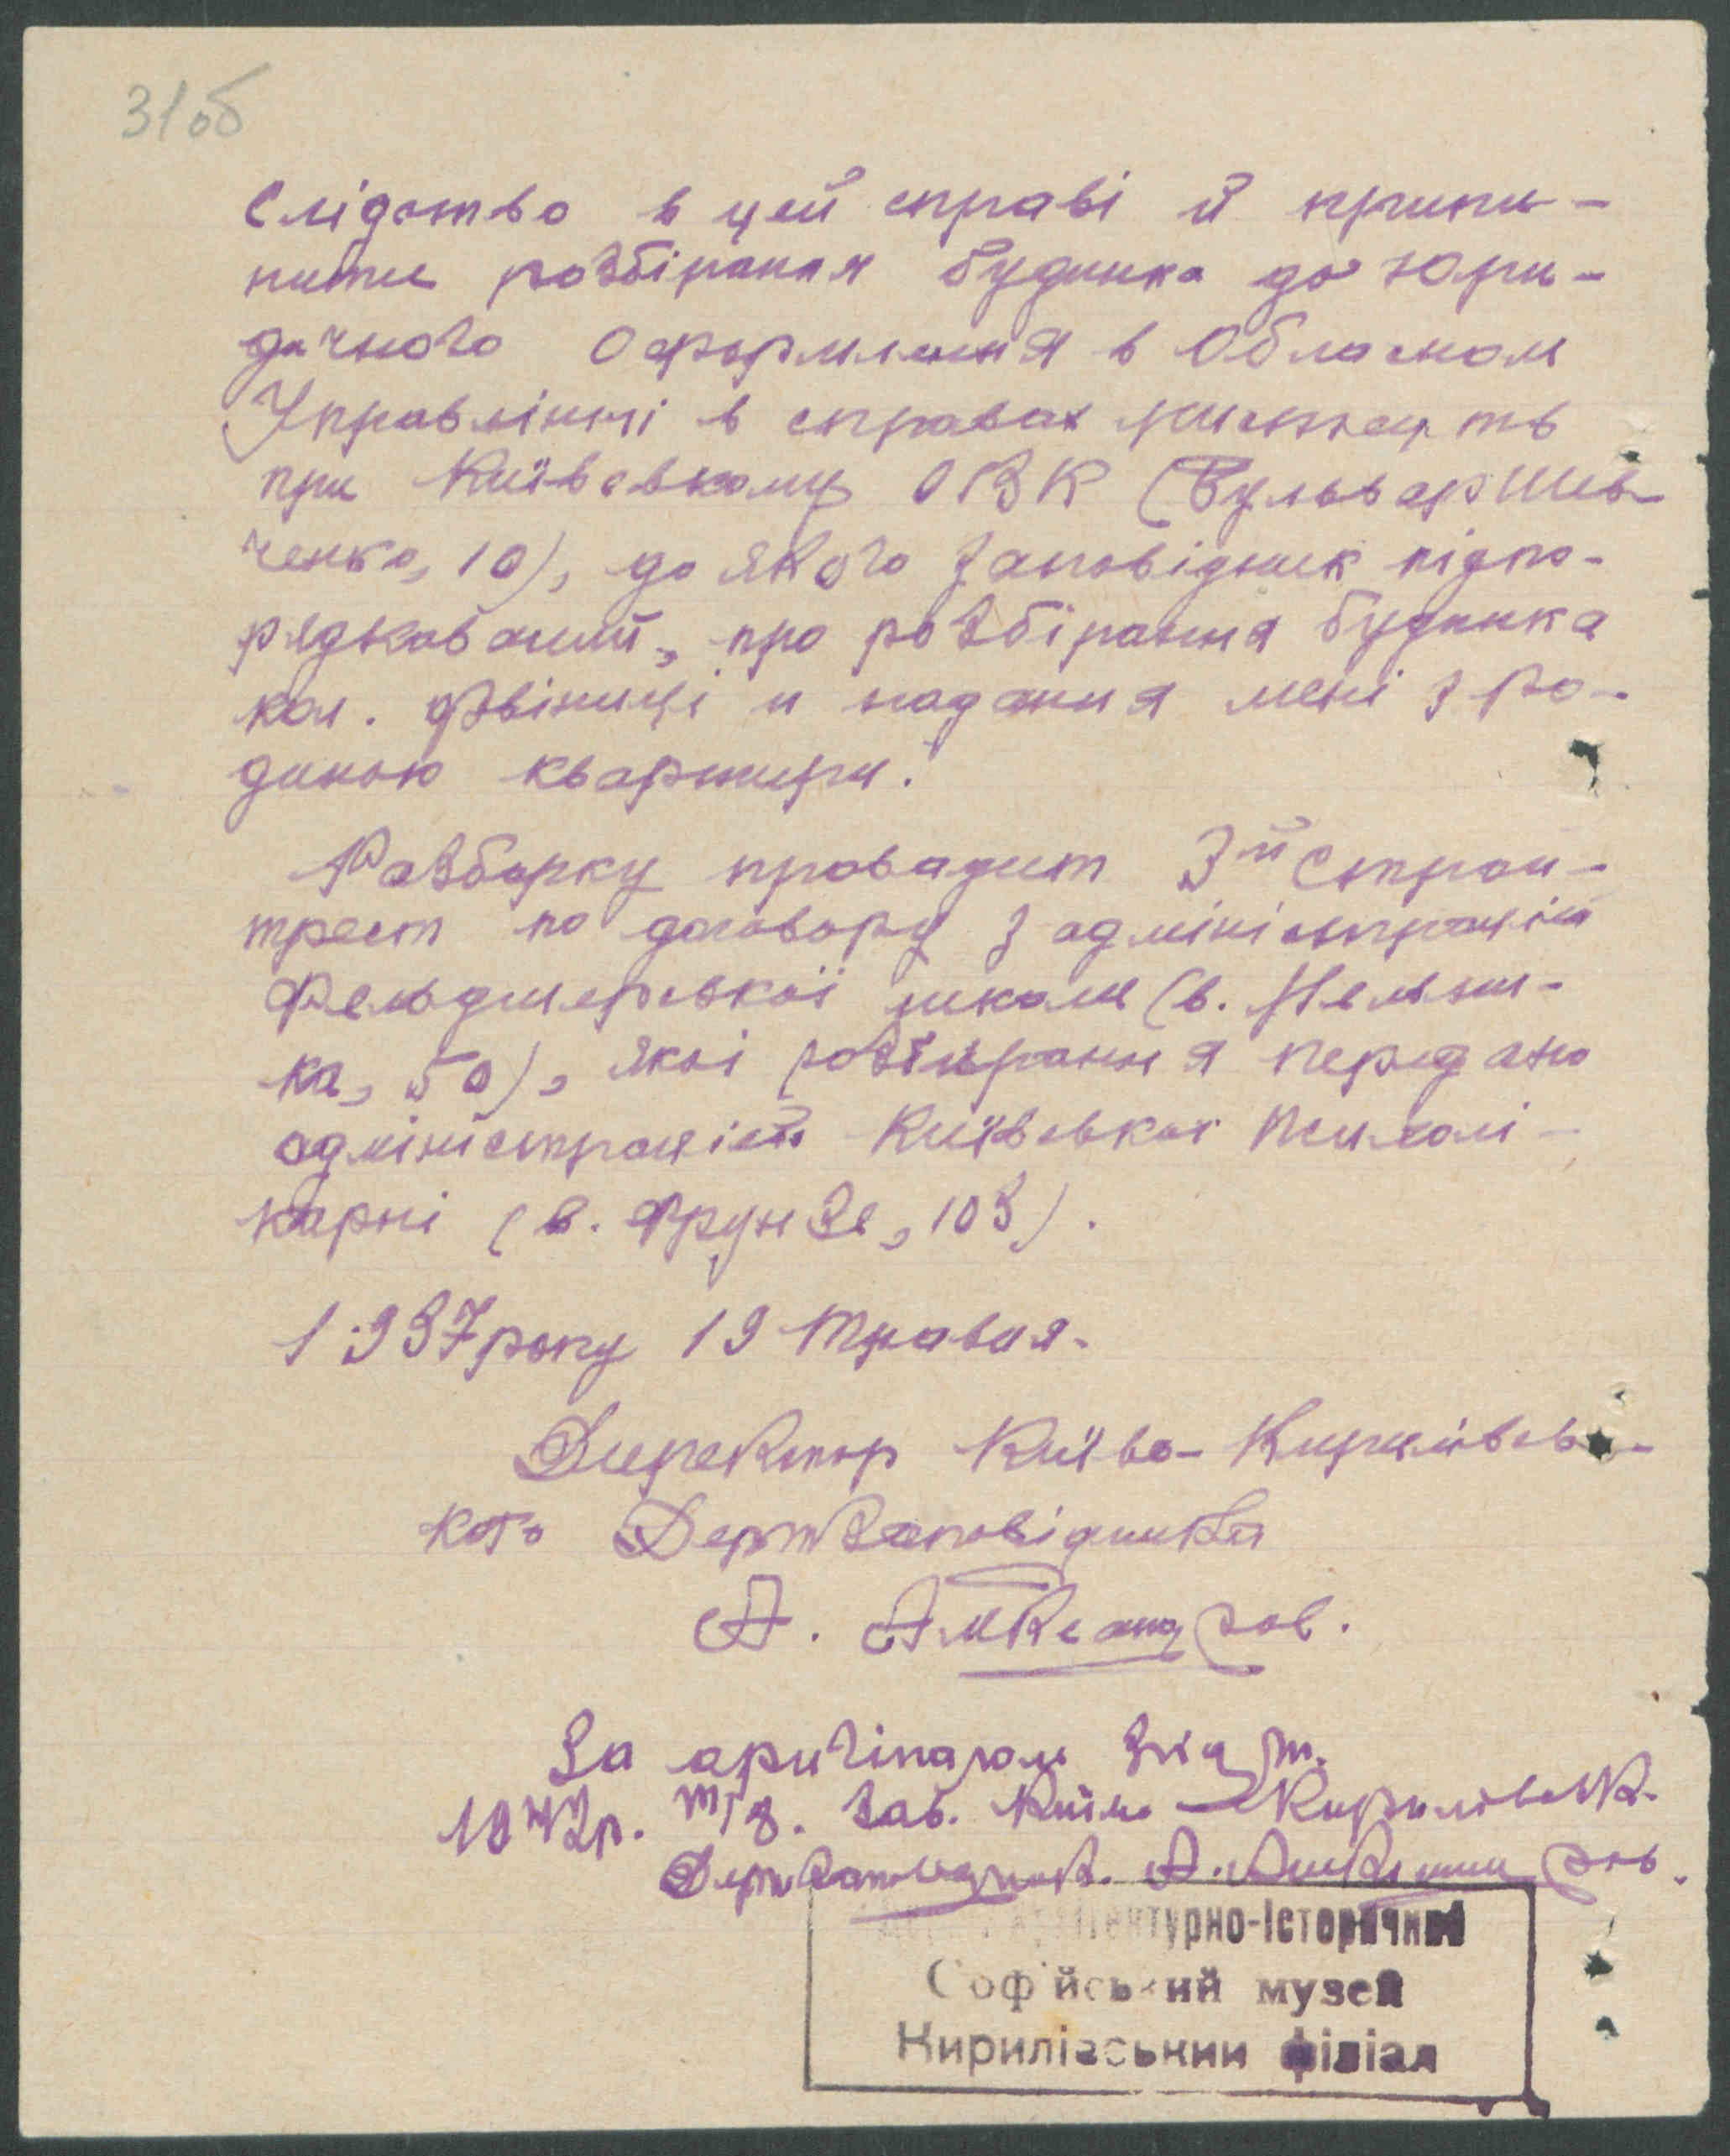 31об
Слідство в цей справі й припи-
нити розбірання будинка до Юри-
дичного Оформлення в Обласном
Управлінні в справах мистецтв
при Київсвкому ОВК (Бульвар Шев-
ченко, 10), до якого Заповідник підпо-
рядкований, про розбірання будинка
кол. Двінниці и надання мені з ро-
диною квартири.
Разборку провадит 3й Строи-
трест по договору з адміністрацією
Фельдшерської школи (в. Мельни-
ка, 50), якої розбирання передано
адміністрацією Київської Психолі-
карні (в. Фрунзе, 103).
1937 року 19 Травня.
Директор Київо-Кирилівсь-
кого Держзаповідника
А. Александров.
За оригіналом
1942р. Зав. Київо-Кирилівськ.
Держзаповідник. А. Александров.
Архітектурно-Історичний
Софійський музей
Кирилівський філіал